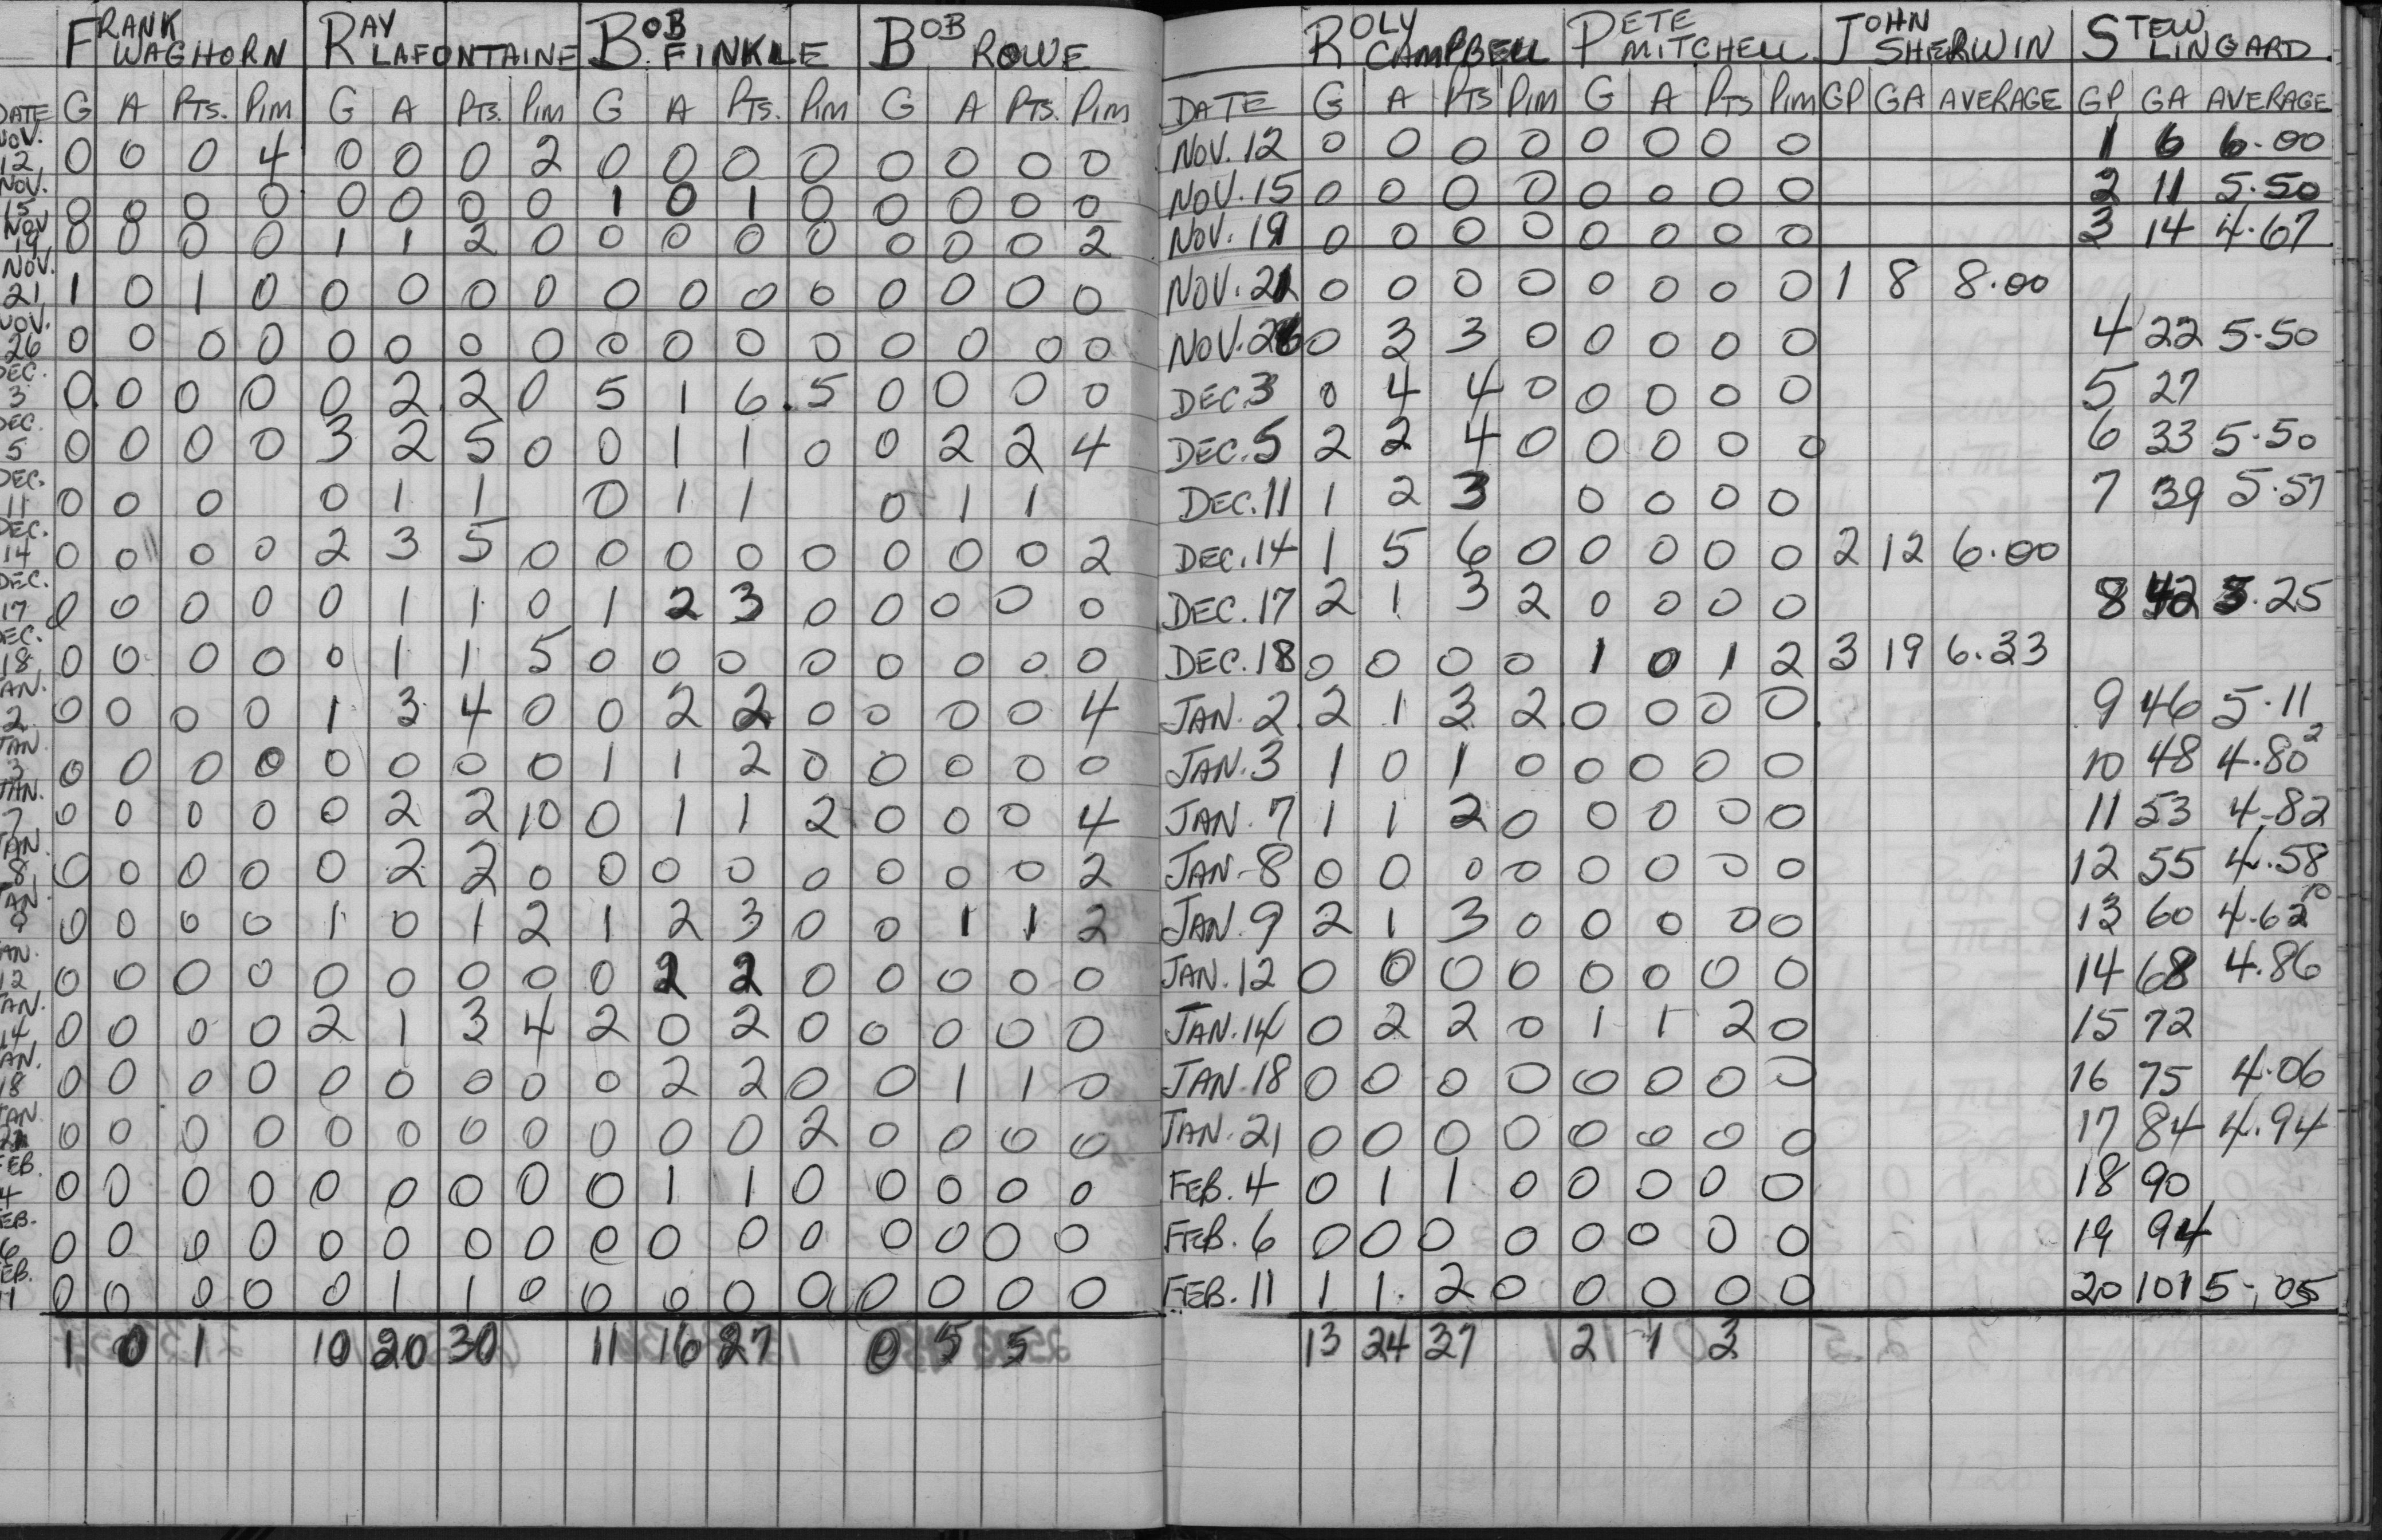 FRANK WAGHORN RAY LAFONTAINE BOB FINKLE BOB ROWE
DATE G A PTS. PIM G A PTS. PIM G A PTS. PIM G A PTS. PIM
NOV. 12 0 0 0 4 0 0 0 2 0 0 0 0 0 0 0 0
NOV. 15 0 0 0 0 0 0 0 0 1 0 1 0 0 0 0 0
NOV 19 0 0 0 0 1 1 2 0 0 0 0 0 0 0 0 2
NOV. 21 1 0 1 0 0 0 0 0 0 0 0 0 0 0 0 0
NOV. 26 0 0 0 0 0 0 0 0 0 0 0 0 0 0 0 0
DEC. 3 0 0 0 0 0 2 2 0 5 1 6 5 0 0 0 0
DEC. 5 0 0 0 0 3 2 5 0 0 1 1 0 0 2 2 4
DEC. 11 0 0 0 0 1 1 0 1 1 0 1 1
DEC. 14 0 0 0 0 2 3 5 0 0 0 0 0 0 0 0 2
DEC. 17 0 0 0 0 0 1 1 0 1 2 3 0 0 0 0 0
DEC. 18 0 0 0 0 0 1 1 5 0 0 0 0 0 0 0 0
JAN. 2 0 0 0 0 1 3 4 0 0 2 2 0 0 0 0 4
JAN 3 0 0 0 0 0 0 0 0 1 1 2 0 0 0 0 0
JAN. 7 0 0 0 0 0 2 2 10 0 1 1 2 0 0 0 4
JAN. 8 0 0 0 0 0 2 2 0 0 0 0 0 0 0 0 2
JAN 9 0 0 0 0 1 0 1 2 1 2 3 0 0 1 1 2
JAN. 12 0 0 0 0 0 0 0 0 0 2 2 0 0 0 0 0
JAN. 14 0 0 0 0 2 1 3 4 2 0 2 0 0 0 0 0
JAN. 18 0 0 0 0 0 0 0 0 0 2 2 0 0 1 1 0
JAN 21 0 0 0 0 0 0 0 0 0 0 0 2 0 0 0 0
FEB. 4 0 0 0 0 0 0 0 0 0 1 1 0 0 0 0 0
FEB. 6 0 0 0 0 0 0 0 0 0 0 0 0 0 0 0 0
FEB. 11 0 0 0 0 0 1 1 0 0 0 0 0 0 0 0 0
1 0 1 10 20 30 11 16 27 0 5 5
ROLY CAMPBELL PETE MITCHELL JOHN SHERWIN STEW LINGARD
DATE G A PTS PIM G A PTS PIM GP GA AVERAGE GP GA AVERAGE
NOV. 12 0 0 0 0 0 0 0 0 1 6 6.00
NOV. 15 0 0 0 0 0 0 0 0 2 11 5.50
NOV. 19 0 0 0 0 0 0 0 0 3 14 4.67
NOV. 21 0 0 0 0 0 0 0 0 1 8 8.00
NOV. 26 0 3 3 0 0 0 0 0 4 22 5.50
DEC. 3 0 4 4 0 0 0 0 0 5 27
DEC. 5 2 2 4 0 0 0 0 0 6 33 5.50
DEC. 11 1 2 3 0 0 0 0 7 39 5.57
DEC. 14 1 5 6 0 0 0 0 0 2 12 6.00
DEC. 17 2 1 3 2 0 0 0 0 8 42 5.25
DEC. 18 0 0 0 0 1 0 1 2 3 19 6.33
JAN. 2 2 1 3 2 0 0 0 0 9 46 5.11
JAN. 3 1 0 1 0 0 0 0 0 10 48 4.80 2
JAN. 7 1 1 2 0 0 0 0 0 11 53 4.82
JAN. 8 0 0 0 0 0 0 0 0 12 55 4.58
JAN. 9 2 1 3 0 0 0 0 0 13 60 4.62 10
JAN. 12 0 0 0 0 0 0 0 0 14 68 4.86
JAN. 14 0 2 2 0 1 1 2 0 15 72
JAN. 18 0 0 0 0 0 0 0 0 16 75 4.06
JAN. 21 0 0 0 0 0 0 0 0 17 84 4.94
FEB. 4 0 1 1 0 0 0 0 0 18 90
FEB. 6 0 0 0 0 0 0 0 0 19 94
FEB. 11 1 1 2 0 0 0 0 0 20 101 5.05
13 24 37 2 1 3